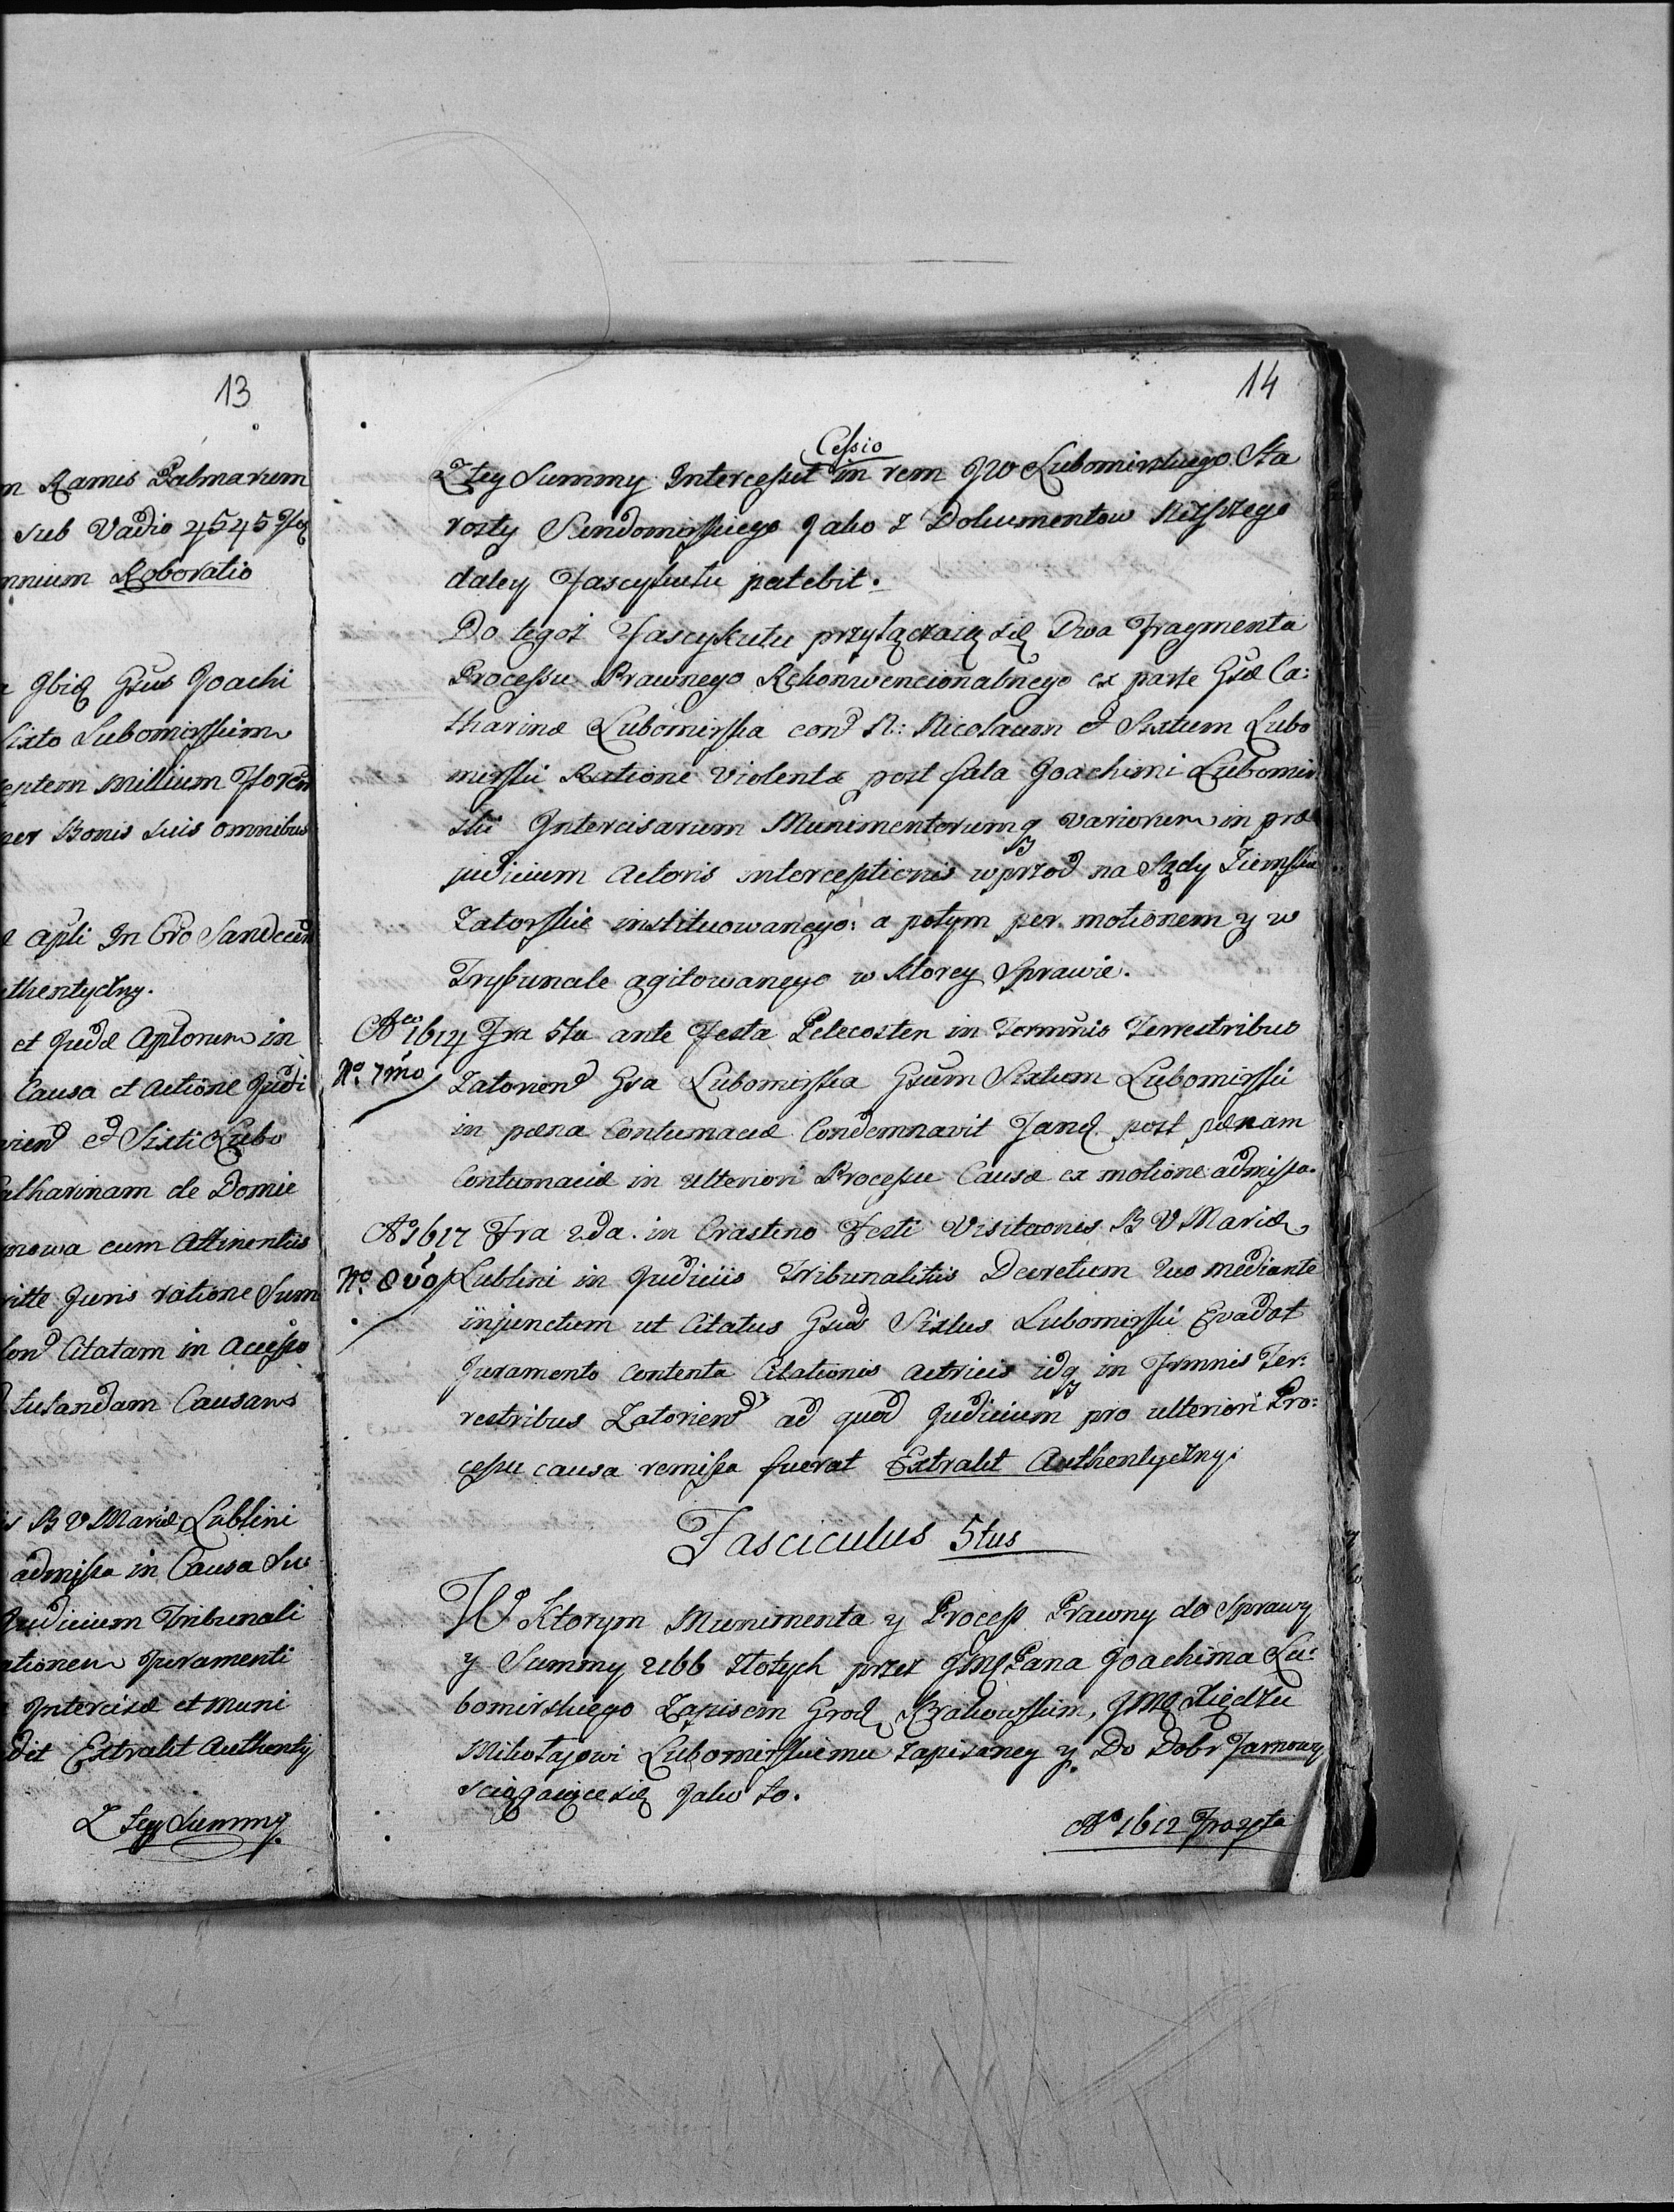 13
n Ramis Palmarum
sub Vadio 4545
mnium Roboratio
Gsus Joachi
Sixto Lubomirskim
eptem Millium Floren
per Bonis suis omnibus
apli In Cro Sandecen
uthentyczny.
et Judæ Aplorum in
Causa et Actione Judi
Sixti Lubo
Catharinam de Domie
nowa cum Attinentiis
ritte Juris ratione Sum
Citatam in Accessio
tutandam Causam
is B V Mariæ Lublini
admissa in Causa Su
Judicium Tribunali
ationem Juramenti
Intercisæ et Muni
dit Extrakt Authenty
Z tey Summy.
14
Cessio
Z tey Summy Intercessit in rem JW Lubomirskiego Sta
rosty Sendomirskiego Jako z Dokumentow Niższego
daley Fascykułu patebit.
Do tegoż Fascykułu przyłączaią się Dwa Fragmenta
Processu Prawnego Rekonwencionalnego ex parte Gsæ Ca:
tharinæ Lubomirska con N: Nicolaum et Sixtum Lubo
mirskii Ratione Violentæ post fata Joachimi Lubomir
skii Intercisarum Munimentorumq Variorum in præ
judicium Actoris interceptionis wprzod na Sądy Ziemskie
Zatorskie instituowanego: a potym per motionem y w
Trybunale agitowanego w Ktorey Sprawie.
Ao 1614 Fra 5ta ante Festa Petecosten in Terminis Terrestribus
No. 7mo Zatorien Gsa Lubomirska Gsum Sixtum Lubomirskii
in pæna Contumaciæ Condemnavit Tand post pænam
Contumaciæ in ulteriori Processu Causæ ex motione admissa.
Ao 1617 Fra 2da. in Crastino Festi Visitaonis B V Mariæ
No. 8vo Lublini in Judiciis Tribunalitiis Decretum Quo mediante
injunctum ut Citatus Gsus Sixtus Lubomirskii Evadat
Juramento Contenta Citationis Actricis idq in Trmnis Ter:
restribus Zatorien ad quod Judicium pro ulteriori Pro:
cessu causa remissa fuerat Extrakt Authentyczny.
Fasciculus 5tus
W Ktorym Munimenta y Process Prawny do Sprawy
y Summy 2166 złotych przez JmP Pana Joachima Lu:
bomirskiego Zapisem Grod Krakowskim, JMq Xiędzu
Mikołajowi Lubomirskiemu zapisaney y Do Dobr Jarnowy
sciągaiące się Jako to.
Ao 1612 Fra 4ta